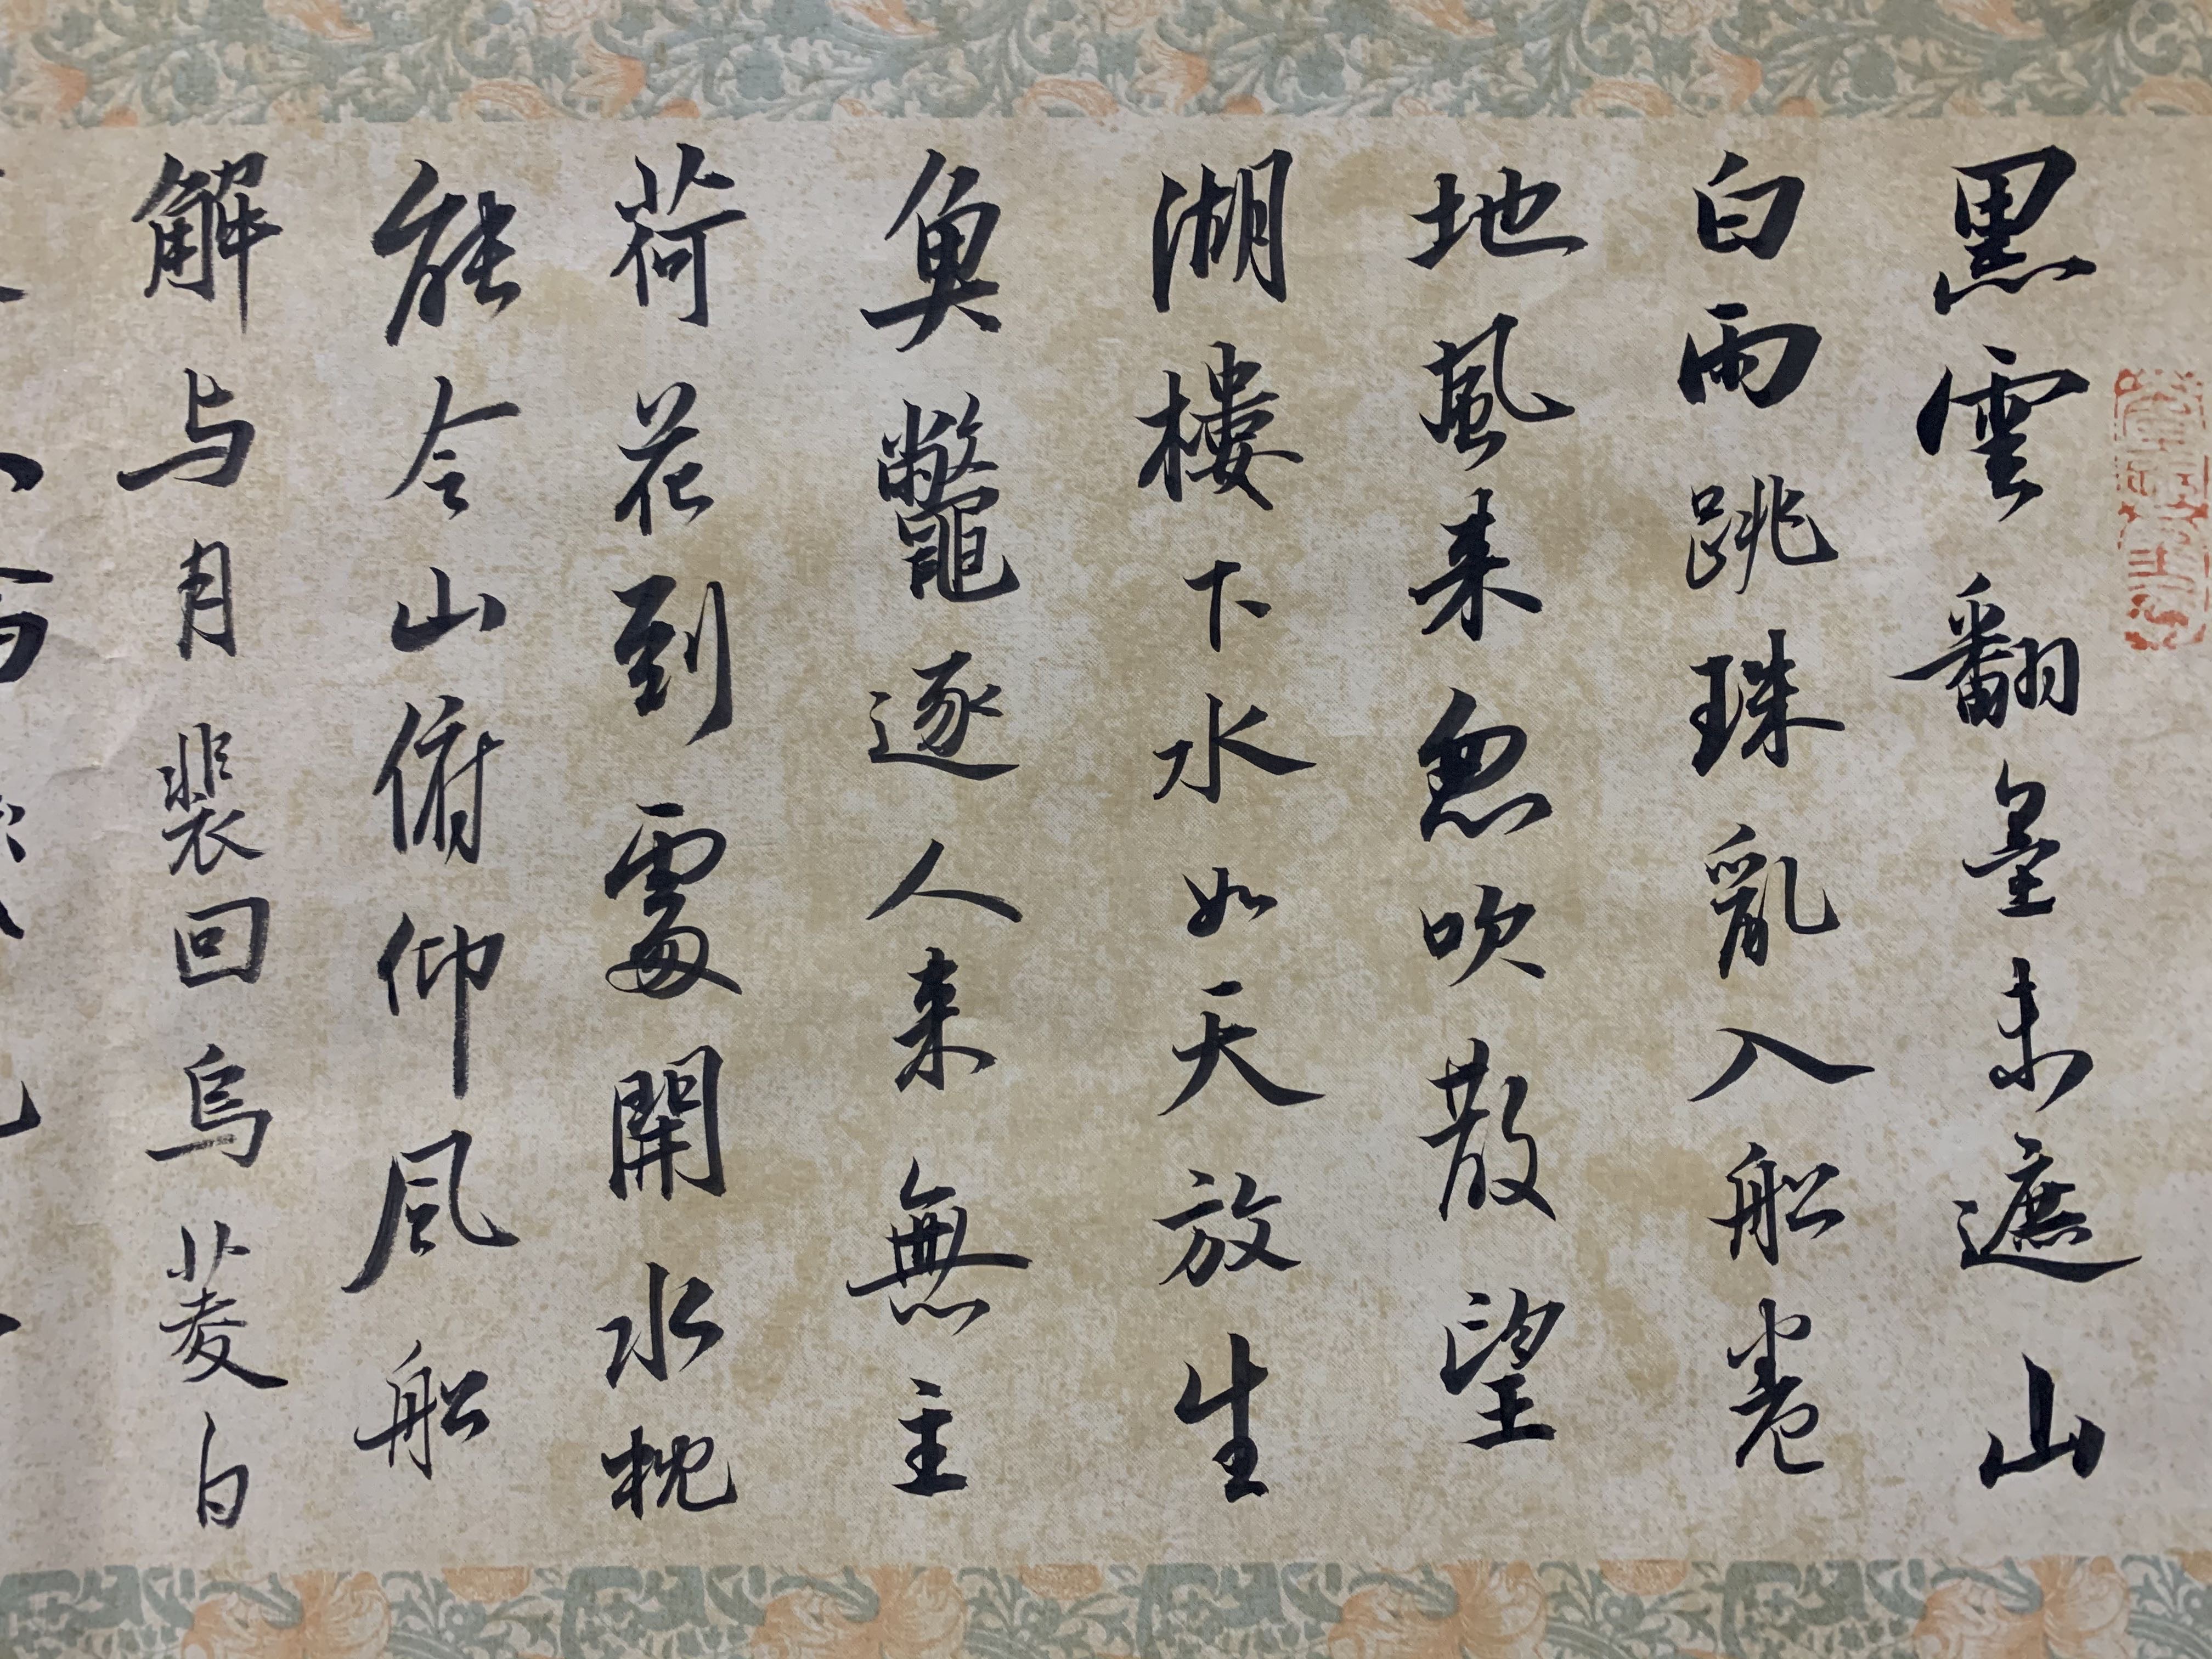 黑雲翻墨未遮山
白雨跳珠亂入船卷
地風来忽吹散望
湖樓下水如天放生
魚鼈逐人来無主
荷花到處開水枕
能令山俯仰風船
解与月裴回烏菱白